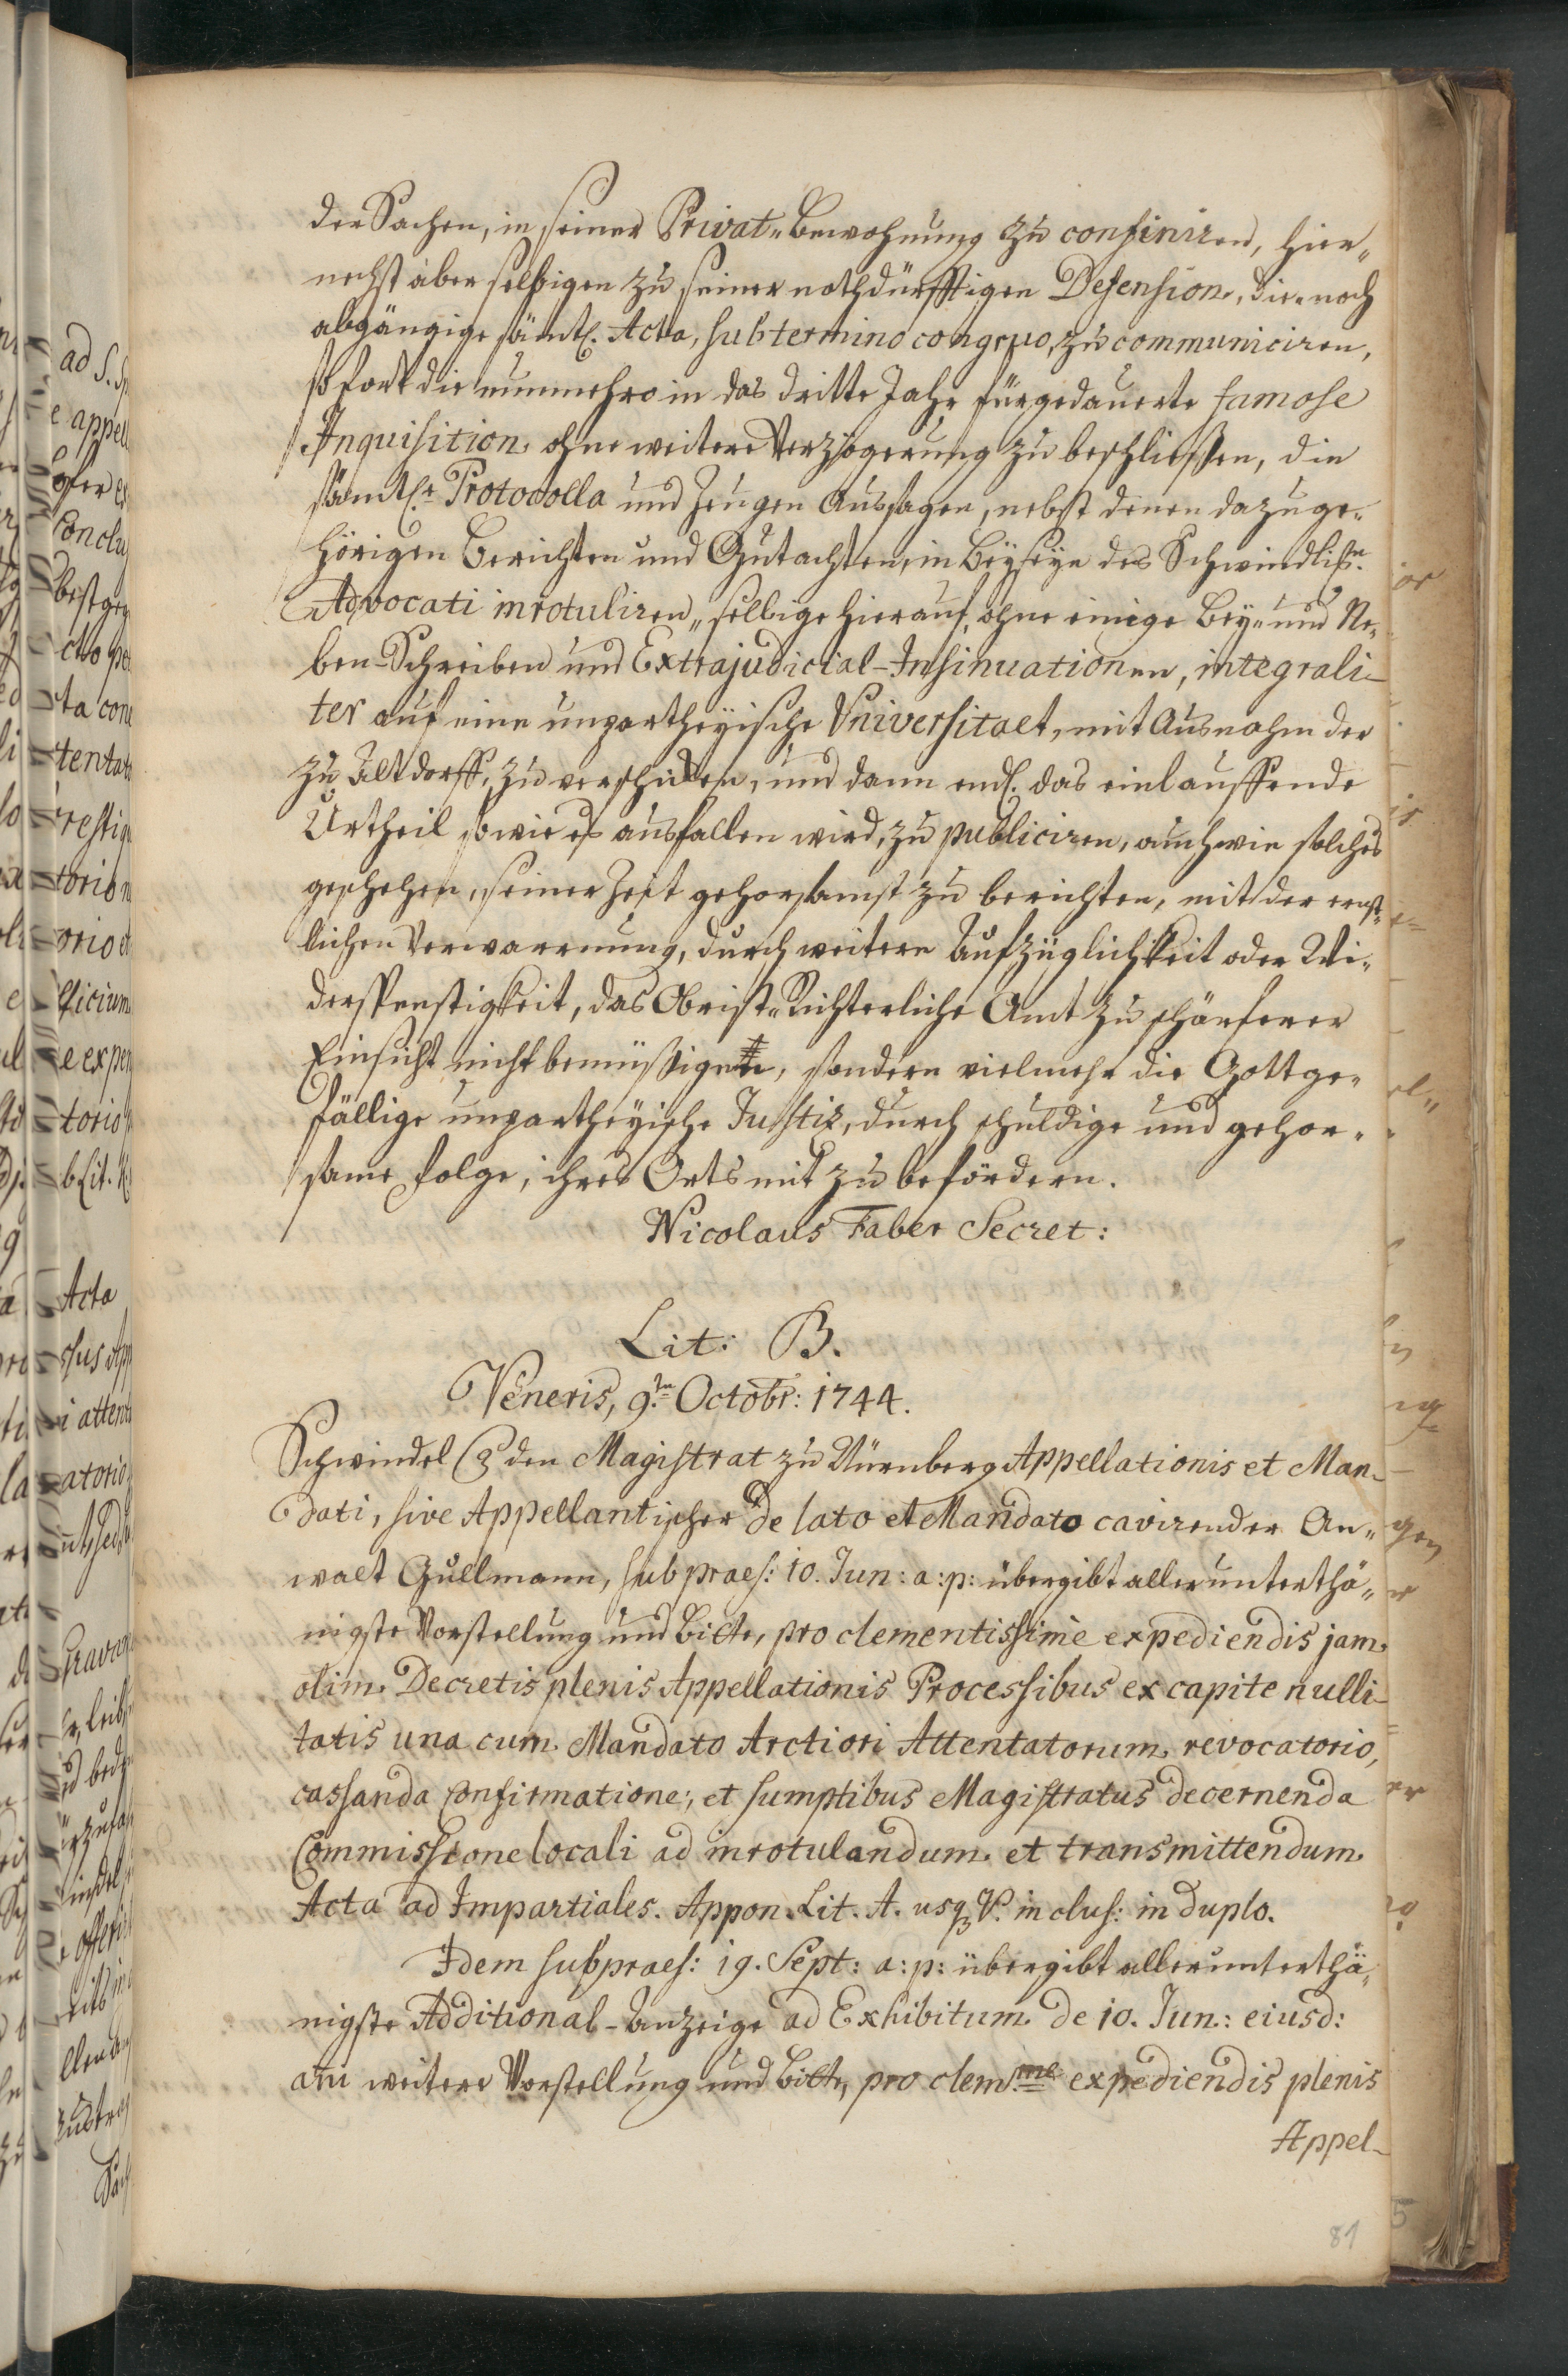 der Sachen, in seiner Privat-Bewohnung zu confiniren, hier„
nechst aber selbigen zu seiner nothdürfftigen Defension, die noch
abgängige sämtl. Acta, sub termino congruo, zu communiciren,
sofort die nunmehro in das dritte Jahr fürgedauerte famose
Inquisition ohne weitere Verzögerung zu beschließen, die
sämtl. Protocolla und Zeugen Aussagen, nebst denen dazu ge„
hörigen Berichten und Gutachten, in Beyseyn des Schwindlisn.
Advocati inrotuliren, selbige hierauf, ohne einige Bey- und Ne„
ben-Schreiben und Extrajudicial-Insinuationen, integrali-
ter auf eine unpartheyische Universitaet, mit Ausnahm der
zu Altdorff, zu verschicken, und dann endl. das einlauffende
Urtheil so wie es ausfallen wird, zu publiciren, auch wie solches
geschehen, seiner Zeit gehorsamst zu berichten, mit der ernst„
lichen Verwarnung, durch weitere Aufzüglichkeit oder Wi„
derspenstigkeit, das Obrist-Richterliche Amt zu schärferer
Einsicht nicht bemüßigen, sondern vielmehr die Gottge„
fällige unpartheyische Justiz, durch schuldige und gehor„
same Folge, ihres Orts mit zu befördern.
Nicolaus Faber Secret:
Lit: B.
Veneris, 9.ⁿ Octobr: 1744.
Schwindel den Magistrat zu Nürnberg Appellationis et Man-
dati, sive Appellantischer de lato et Mandato cavirender An„
walt Gullmann, sub praes: 10. Jun: a: p: übergibt allerunterthä„
nigste Vorstellung und Bitte, pro clementissime expediendis jam
olim Decretis plenis Appellationis Processibus ex capite nulli-
tatis una cum Mandato Arctiori Attentatorum revocatorio,
cassanda Confirmatione, et sumptibus Magistratus decernenda
Commissione locali ad inrotulandum et transmittendum
Acta ad Impartiales. Appon. Lit. A. usq V. inclus: in duplo.
Idem sub praes: 19. Sept: a: p: übergibt allerunterthä„
nigste Additional-Anzeige ad Exhibitum de 10. Jun: eiusd:
weitere Vorstellung und Bitte, pro clem.me expediendis plenis
Appel-
81